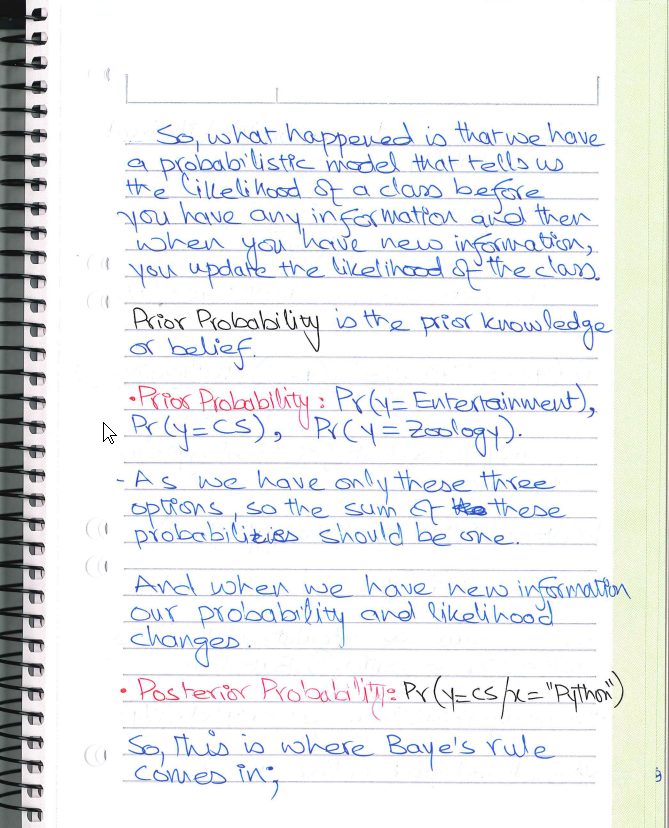 So, what happened is that we have
a probabilistic model that tells us
the likelihood of a class before
you have any information and then
when you have new information,
you update the likelihood of the class.
Prior Probability is the prior knowledge
or belief.
• Prior Probability: Pr(y=Entertainment),
Pr(y=CS), Pr(y=Zoology).
- As we have only these three
options, so the sum of these
probabilities should be one.
And when we have new information
our probability and likelihood
changes.
• Posterior Probability: Pr(y=CS/x="Python")
So, This is where Baye's rule
comes in;
9